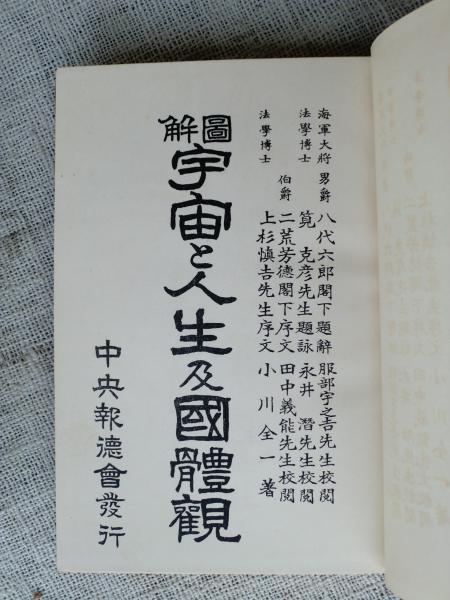 海軍大將 男爵 八代六郎閣下題辭 服部宇之吉先生校閲
法學博士 筧 克彦先生題詠 永井 潛先生校閲
伯爵 二荒芳德閣下序文 田中義能先生校閲
法學博士 上杉愼吉先生序文 小川全一著
圖解 宇宙と人生及國體觀
中央報德會發行